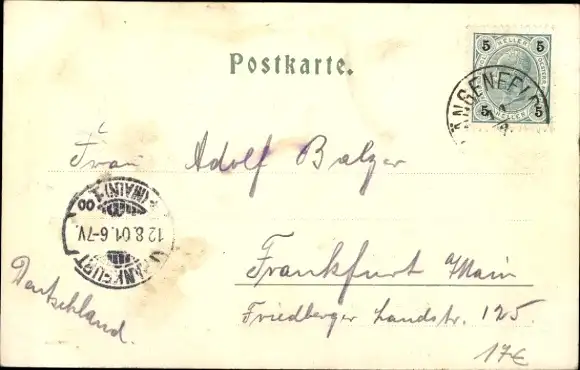 Postkarte.
5 HELLER 5
5 HELLER 5
LÄNGENFELD
Frau Adolf Balzer
FRANKFURT (MAIN) 1
12.8.01.6-7V.
Frankfurt a/Main
Friedberger Landstr. 125.
Deutschland.
17€